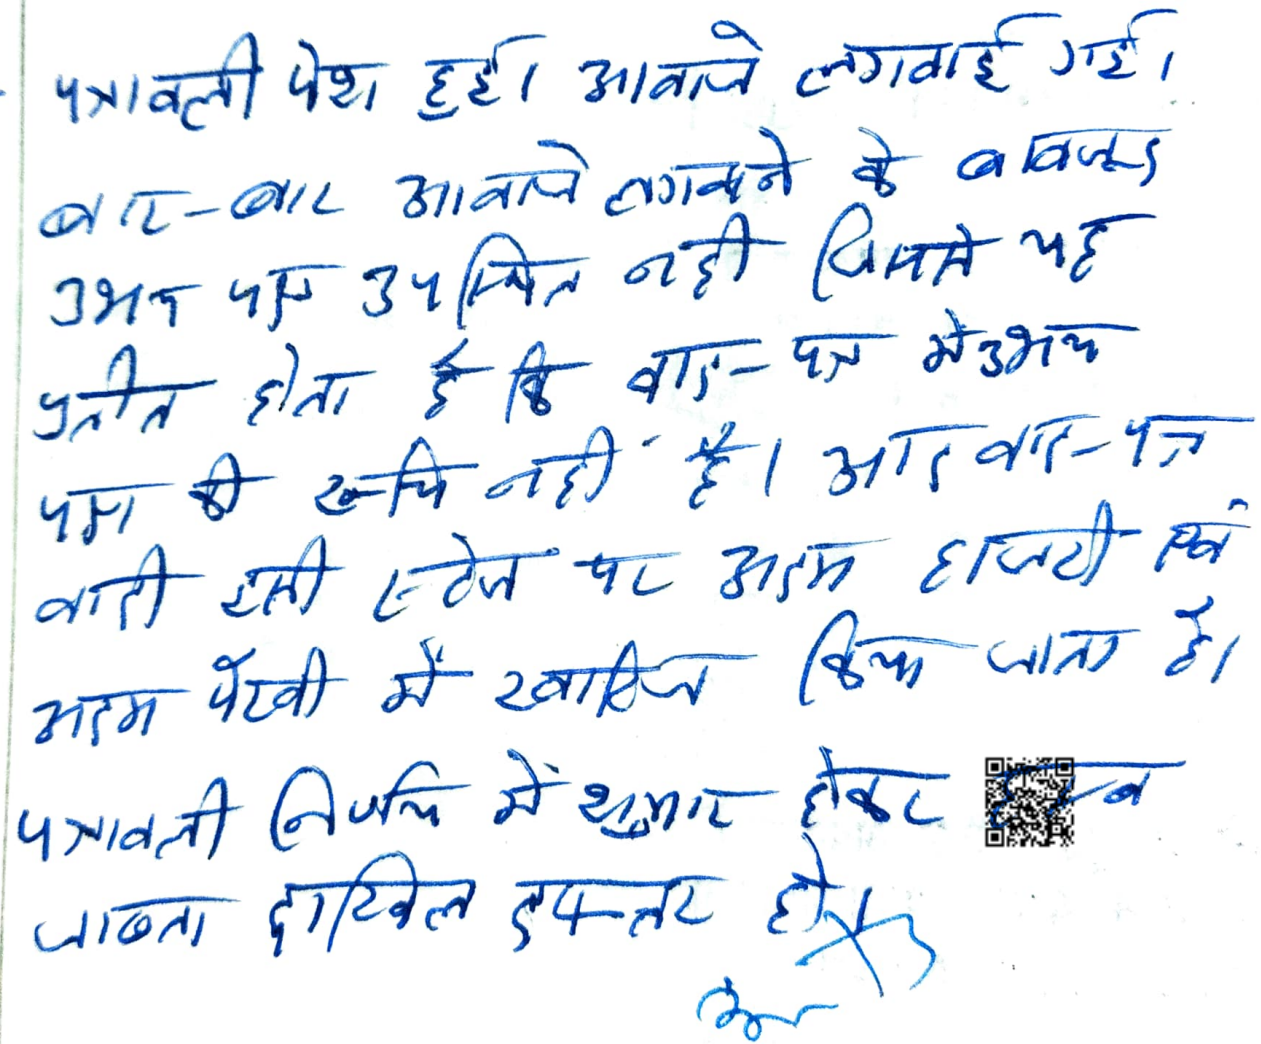 पत्रावली पेश हुई। आवाजे लगवाई गई।
बार-बार आवाजे लगवाने के बावजूद
उभय पक्ष उपस्थित नही जिससे यह
प्रतीत होता है कि वाद-पत्र मे उभय
पक्ष की रूचि नही है। अतः वाद-पत्र
वादी इसी स्टेज पर अदम हाजरी एवं
अदम पैरवी में खारिज किया जाता है।
पत्रावली निर्णय में शुमार होकर
जाब्ता दाखिल दफ्तर हो